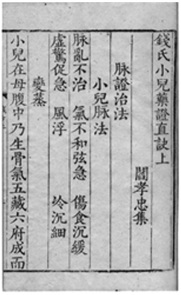 錢氏小兒藥證直訣上
閻孝忠集
脉證治法
小兒脉法
脉亂不治　氣不和弦急　傷食沉緩
虛驚促急　風浮　冷沉細
變蒸
小兒在母腹中乃生骨氣五藏六府成而